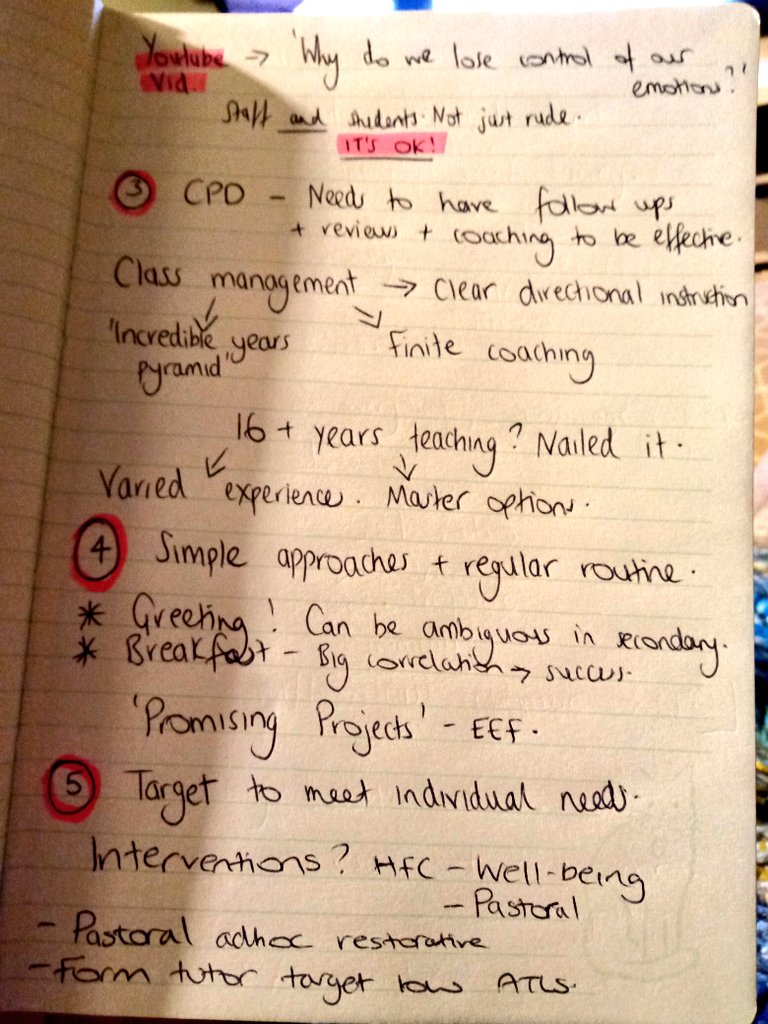 Youtube → 'Why do we lose control of our
Vid. emotions?'
Staff and students. Not just rude.
IT'S OK!
③ CPD - Needs to have follow ups
+ reviews + coaching to be effective.
Class management → Clear directional instruction
'Incredible years Finite coaching
pyramid'
16+ years teaching? Nailed it.
Varied experience. Master options.
④ Simple approaches + regular routine.
* Greeting! Can be ambiguous in secondary.
* Breakfast - Big correlation → success.
'Promising Projects' - EEF.
⑤ Target to meet individual needs.
Interventions? HFC - Well-being
- Pastoral
- Pastoral adhoc restorative
- Form tutor target low ATLS.